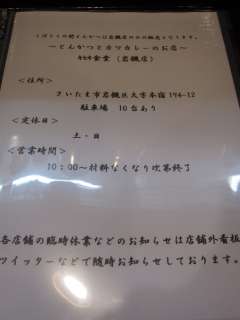 ～とんかつとカツカレーのお店～
食堂（岩槻店）
＜住所＞
さいたま市岩槻区大字本宿174-12
駐車場 10台あり
＜定休日＞
土・日
＜営業時間＞
10：00～材料なくなり次第終了
各店舗の臨時休業などのお知らせは店舗外看板
ツイッターなどで随時お知らせしております。